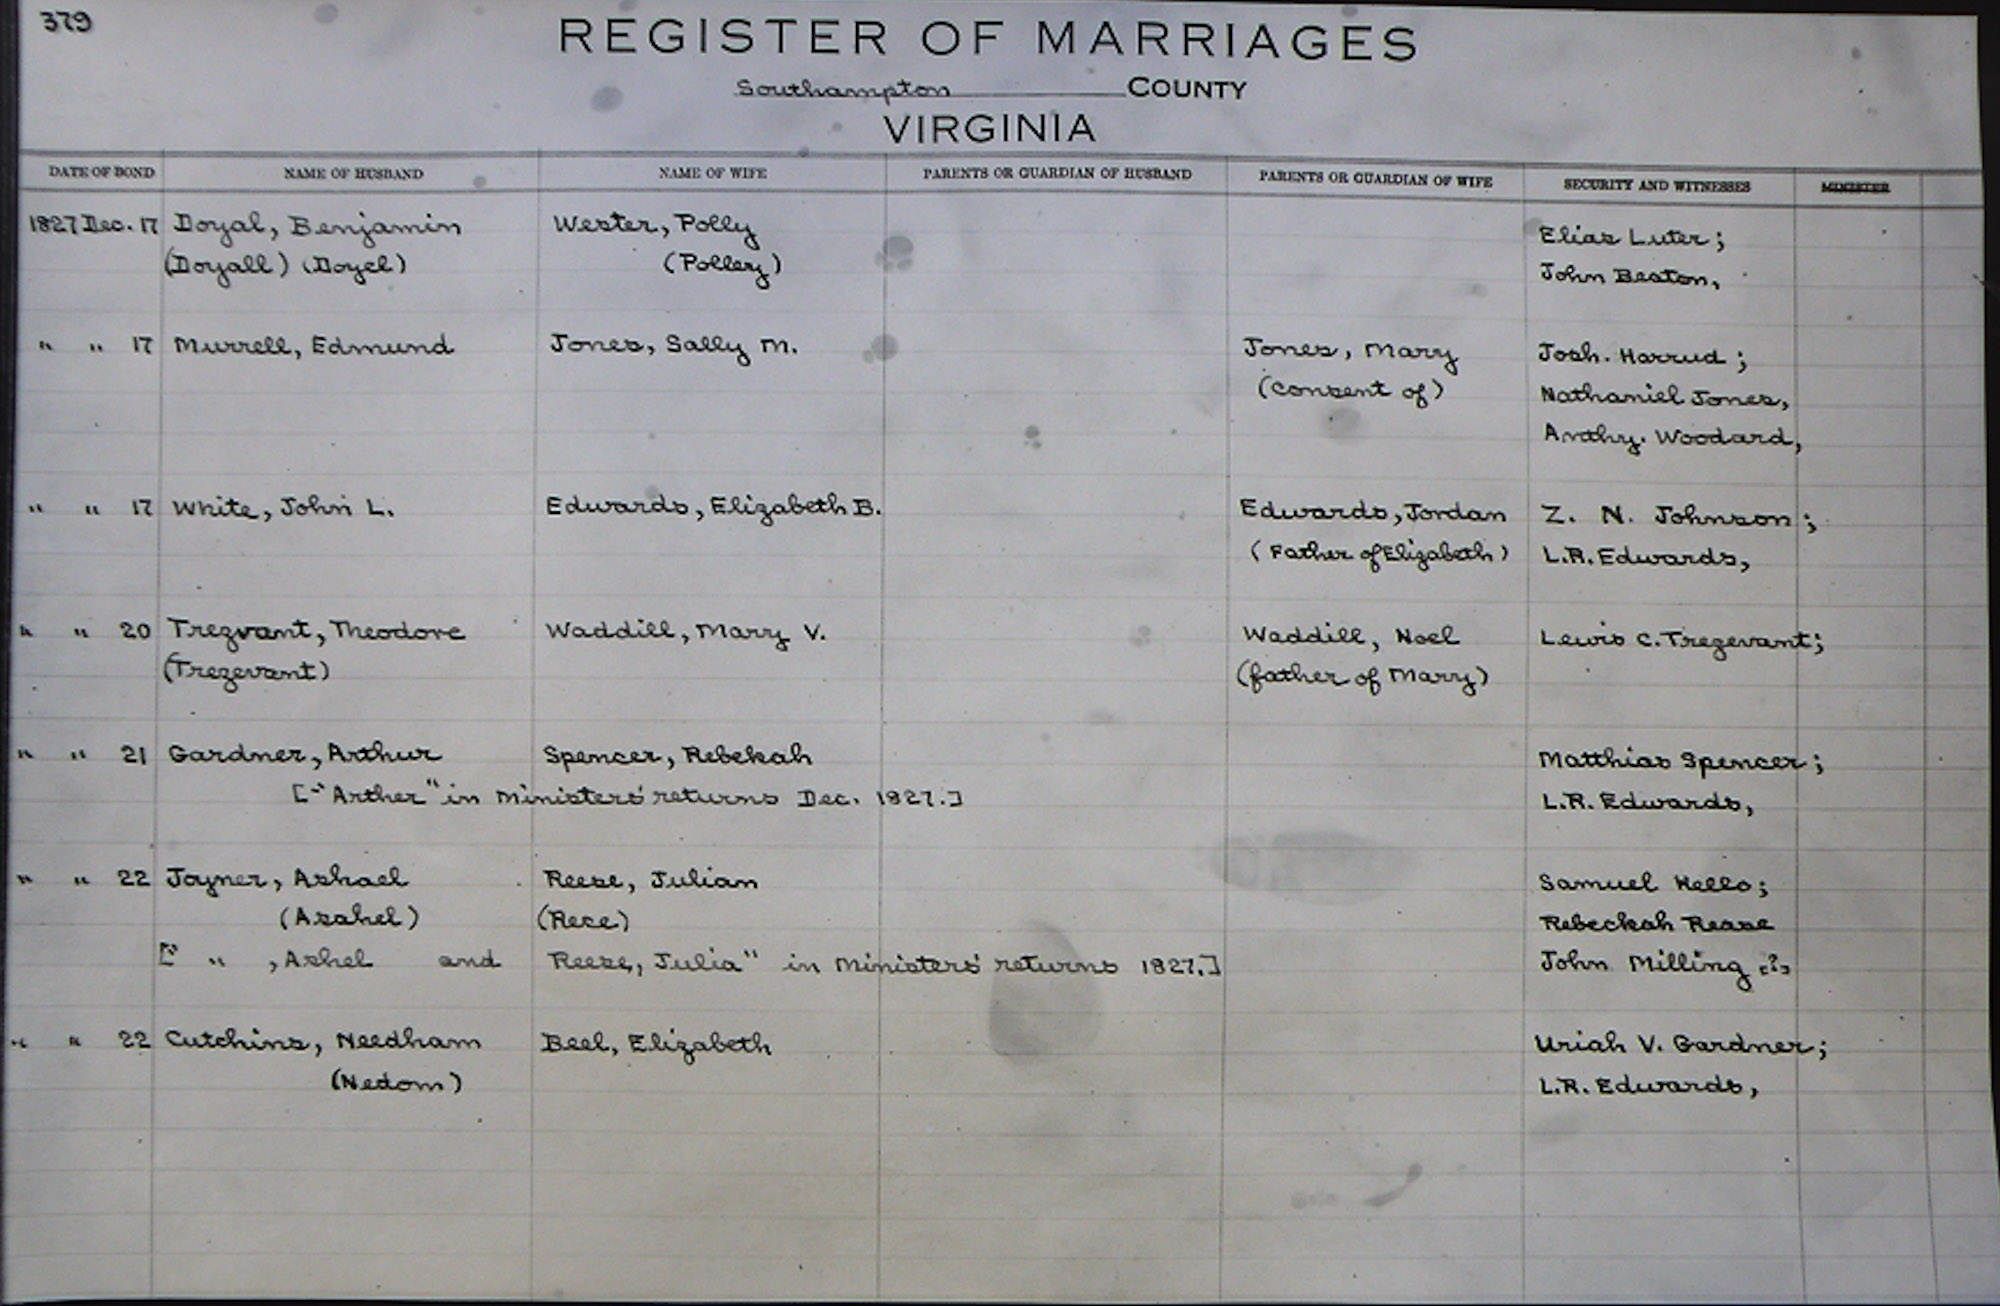 379
REGISTER OF MARRIAGES
Southampton COUNTY
VIRGINIA
DATE OF BOND NAME OF HUSBAND NAME OF WIFE PARENTS OR GUARDIAN OF HUSBAND PARENTS OR GUARDIAN OF WIFE SECURITY AND WITNESSES MINISTER
1827 Dec. 17 Doyal, Benjamin Wester, Polly Elias Luter;
(Doyall) (Doyel) (Pollery) John Beaton,
" " 17 Murrell, Edmund Jones, Sally M. Jones, Mary Josh. Harrud;
(consent of) Nathaniel Jones,
Anthy. Woodard,
" " 17 White, John L. Edwards, Elizabeth B. Edwards, Jordan Z. N. Johnson;
(Father of Elizabeth) L.R. Edwards,
" " 20 Trezvant, Theodore Waddill, Mary V. Waddill, Noel Lewis C. Trezevant;
(Trezevant) (father of Mary)
" " 21 Gardner, Arthur Spencer, Rebekah Matthias Spencer;
["Arther" in Ministers' returns Dec. 1827.] L.R. Edwards,
" " 22 Joyner, Ashael Reese, Julian Samuel Kello;
(Asahel) (Rece) Rebeckah Rease
[" " , Ashel and Reese, Julia" in Ministers' returns 1827.] John Milling [?]
" " 22 Cutchins, Needham Beel, Elizabeth Uriah V. Gardner;
(Nedom) L.R. Edwards,